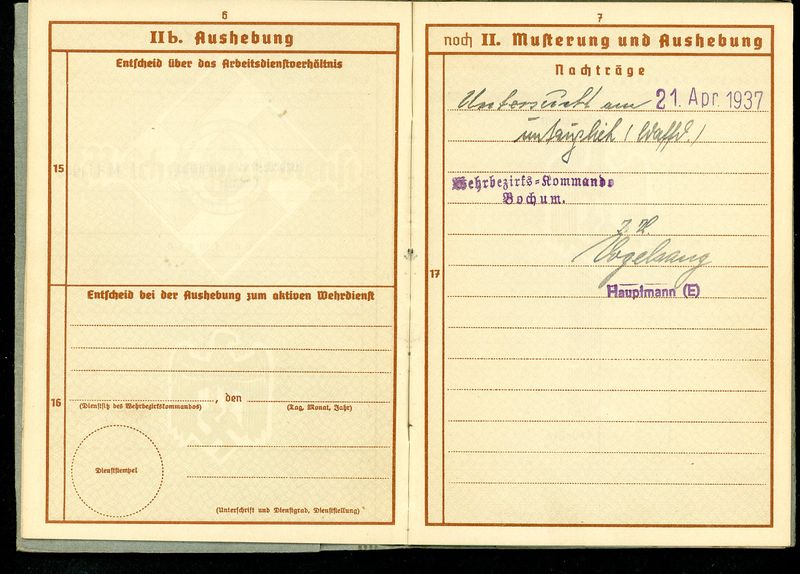 6
IIb. Aushebung
15
Entscheid über das Arbeitsdienstverhältnis
Entscheid bei der Aushebung zum aktiven Wehrdienst
16
, den
(Dienstsitz des Wehrbezirkskommandos) (Tag, Monat, Jahr)
Dienststempel
(Unterschrift und Dienstgrad, Dienststellung)
7
noch II. Musterung und Aushebung
Nachträge
17
Untersucht am 21. Apr. 1937
untauglich (Waffd.)
Wehrbezirks=Kommando
Bochum.
Vogelsang
Hauptmann (E)